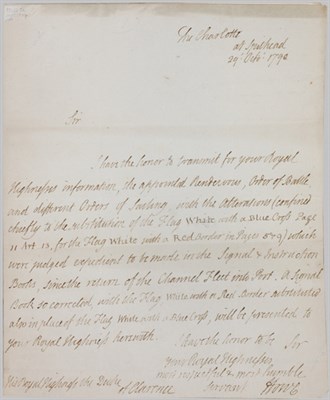 The Charlotte
at Spithead
29th Octr. 1790
Sir
I have the honor to transmit for your Royal
Highnesses information, the appointed Rendezvous, Order of Battle,
and different Orders of Sailing, with the Alterations (confined
chiefly to the substitution of the Flag White with a Blue Cross Page
11 Art. 13, for the Flag White with a Red Border in Pages 8 & 9) which
were judged expedient to be made in the Signal & Instruction
Books, since the return of the Channel Fleet into Port. A Signal
Book so corrected, with the Flag White with a Red Border substituted
also in place of the Flag White with a Blue Cross, will be presented to
your Royal Highness herewith.
I have the honor to be Sir
your Royal Highnesses,
most respectful & most humble
Servant Howe
His Royal Highness the Duke
of Clarence